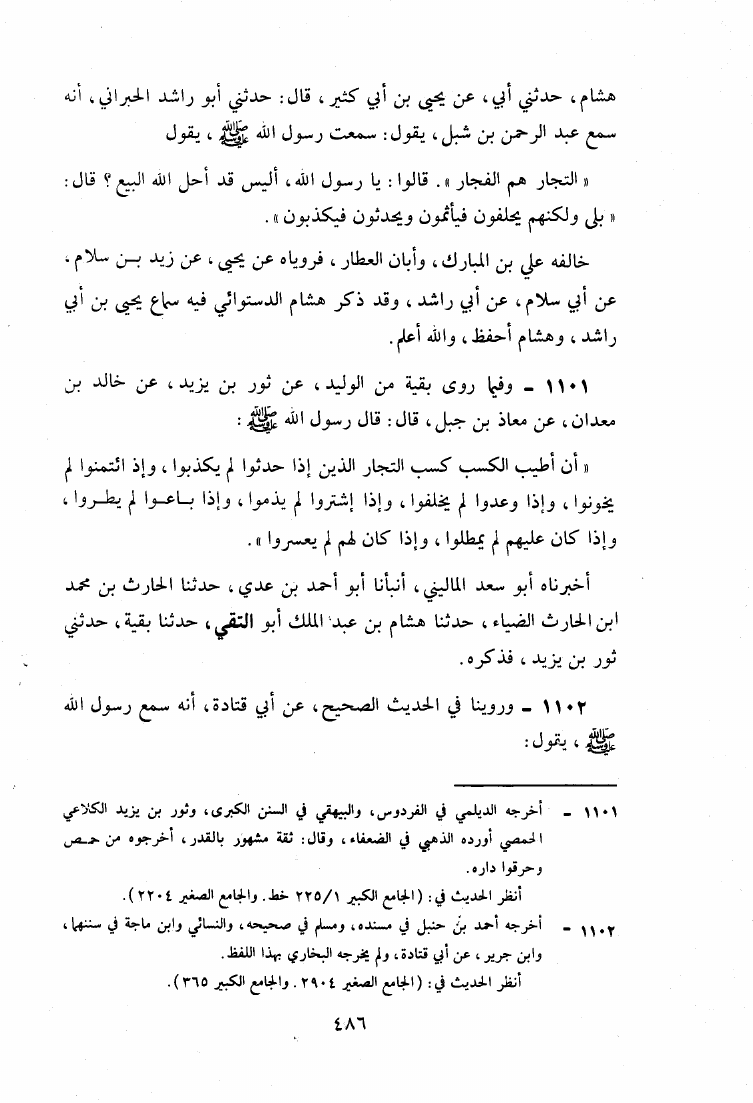 هشام، حدثني أبي، عن يحيى بن أبي كثير، قال: حدثني أبو راشد الحبراني، أنه
سمع عبد الرحمن بن شبل، يقول: سمعت رسول الله ﷺ، يقول
« التجار هم الفجار ». قالوا: يا رسول الله، أليس قد أحل الله البيع؟ قال:
« بلى ولكنهم يحلفون فيأثمون ويحدثون فيكذبون ».
خالفه علي بن المبارك، وأبان العطار، فروياه عن يحيى، عن زيد بـن سلام،
عن أبي سلام، عن أبي راشد، وقد ذكر هشام الدستوائي فيه سماع يحيى بن أبي
راشد، وهشام أحفظ، والله أعلم.
١١٠١ - وفيما روى بقية من الوليد، عن ثور بن يزيد، عن خالد بن
معدان، عن معاذ بن جبل، قال: قال رسول الله ﷺ:
« أن أطيب الكسب كسب التجار الذين إذا حدثوا لم يكذبوا، وإذ ائتمنوا لم
يخونوا، وإذا وعدوا لم يخلفوا، وإذا إشتروا لم يذموا، وإذا بـاعـوا لم يطـروا،
وإذا كان عليهم لم يمطلوا، وإذا كان لهم لم يعسروا ».
أخبرناه أبو سعد الماليني، أنبأنا أبو أحمد بن عدي، حدثنا الحارث بن محمد
ابن الحارث الضياء، حدثنا هشام بن عبد الملك أبو التقي، حدثنا بقية، حدثني
ثور بن يزيد، فذكره.
١١٠٢ - وروينا في الحديث الصحيح، عن أبي قتادة، أنه سمع رسول الله
ﷺ، يقول:
١١٠١ - أخرجه الديلمي في الفردوس، والبيهقي في السنن الكبرى، وثور بن يزيد الكلاعي
الحمصي أورده الذهبي في الضعفاء، وقال: ثقة مشهور بالقدر، أخرجوه من حمـص
وحرقوا داره.
أنظر الحديث في: (الجامع الكبير ٢٢٥/١ خط. والجامع الصغير ٢٢٠٤).
١١٠٢ - أخرجه أحمد بن حنبل في مسنده، ومسلم في صحيحه، والنسائي وابن ماجة في سننهما،
وابن جرير، عن أبي قتادة، ولم يخرجه البخاري بهذا اللفظ.
أنظر الحديث في: (الجامع الصغير ٢٩٠٤. والجامع الكبير ٣٦٥).
٤٨٦